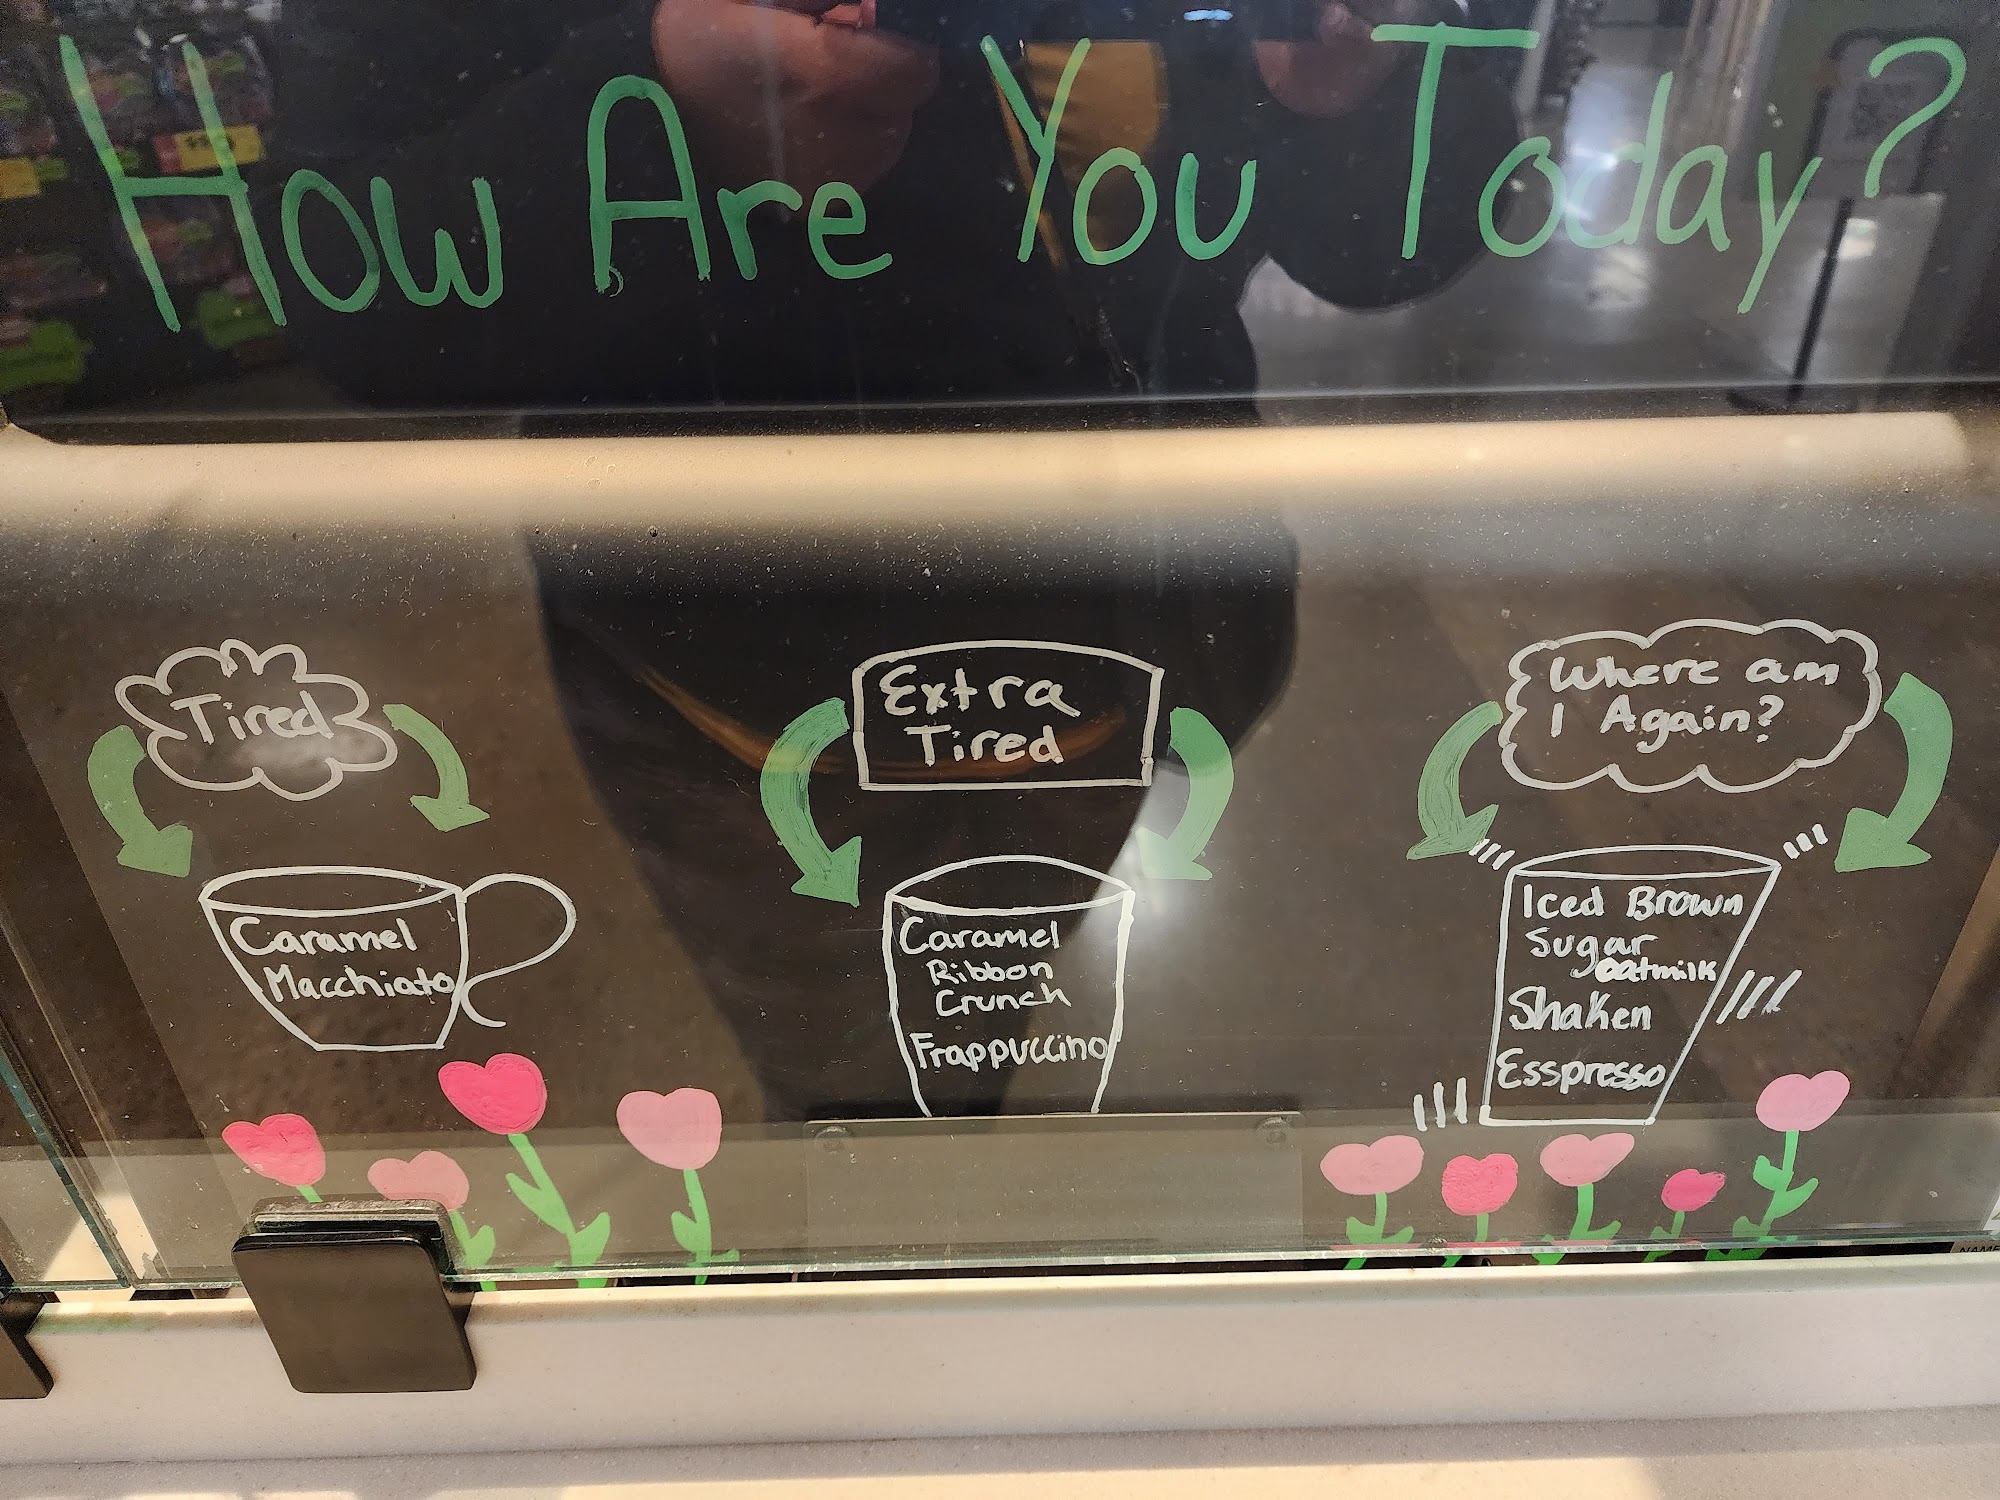 How Are You Today?
Tired
Caramel
Macchiato
Extra
Tired
Caramel
Ribbon
Crunch
Frappuccino
Where am
I Again?
Iced Brown
Sugar
oatmilk
Shaken
Esspresso
NAME